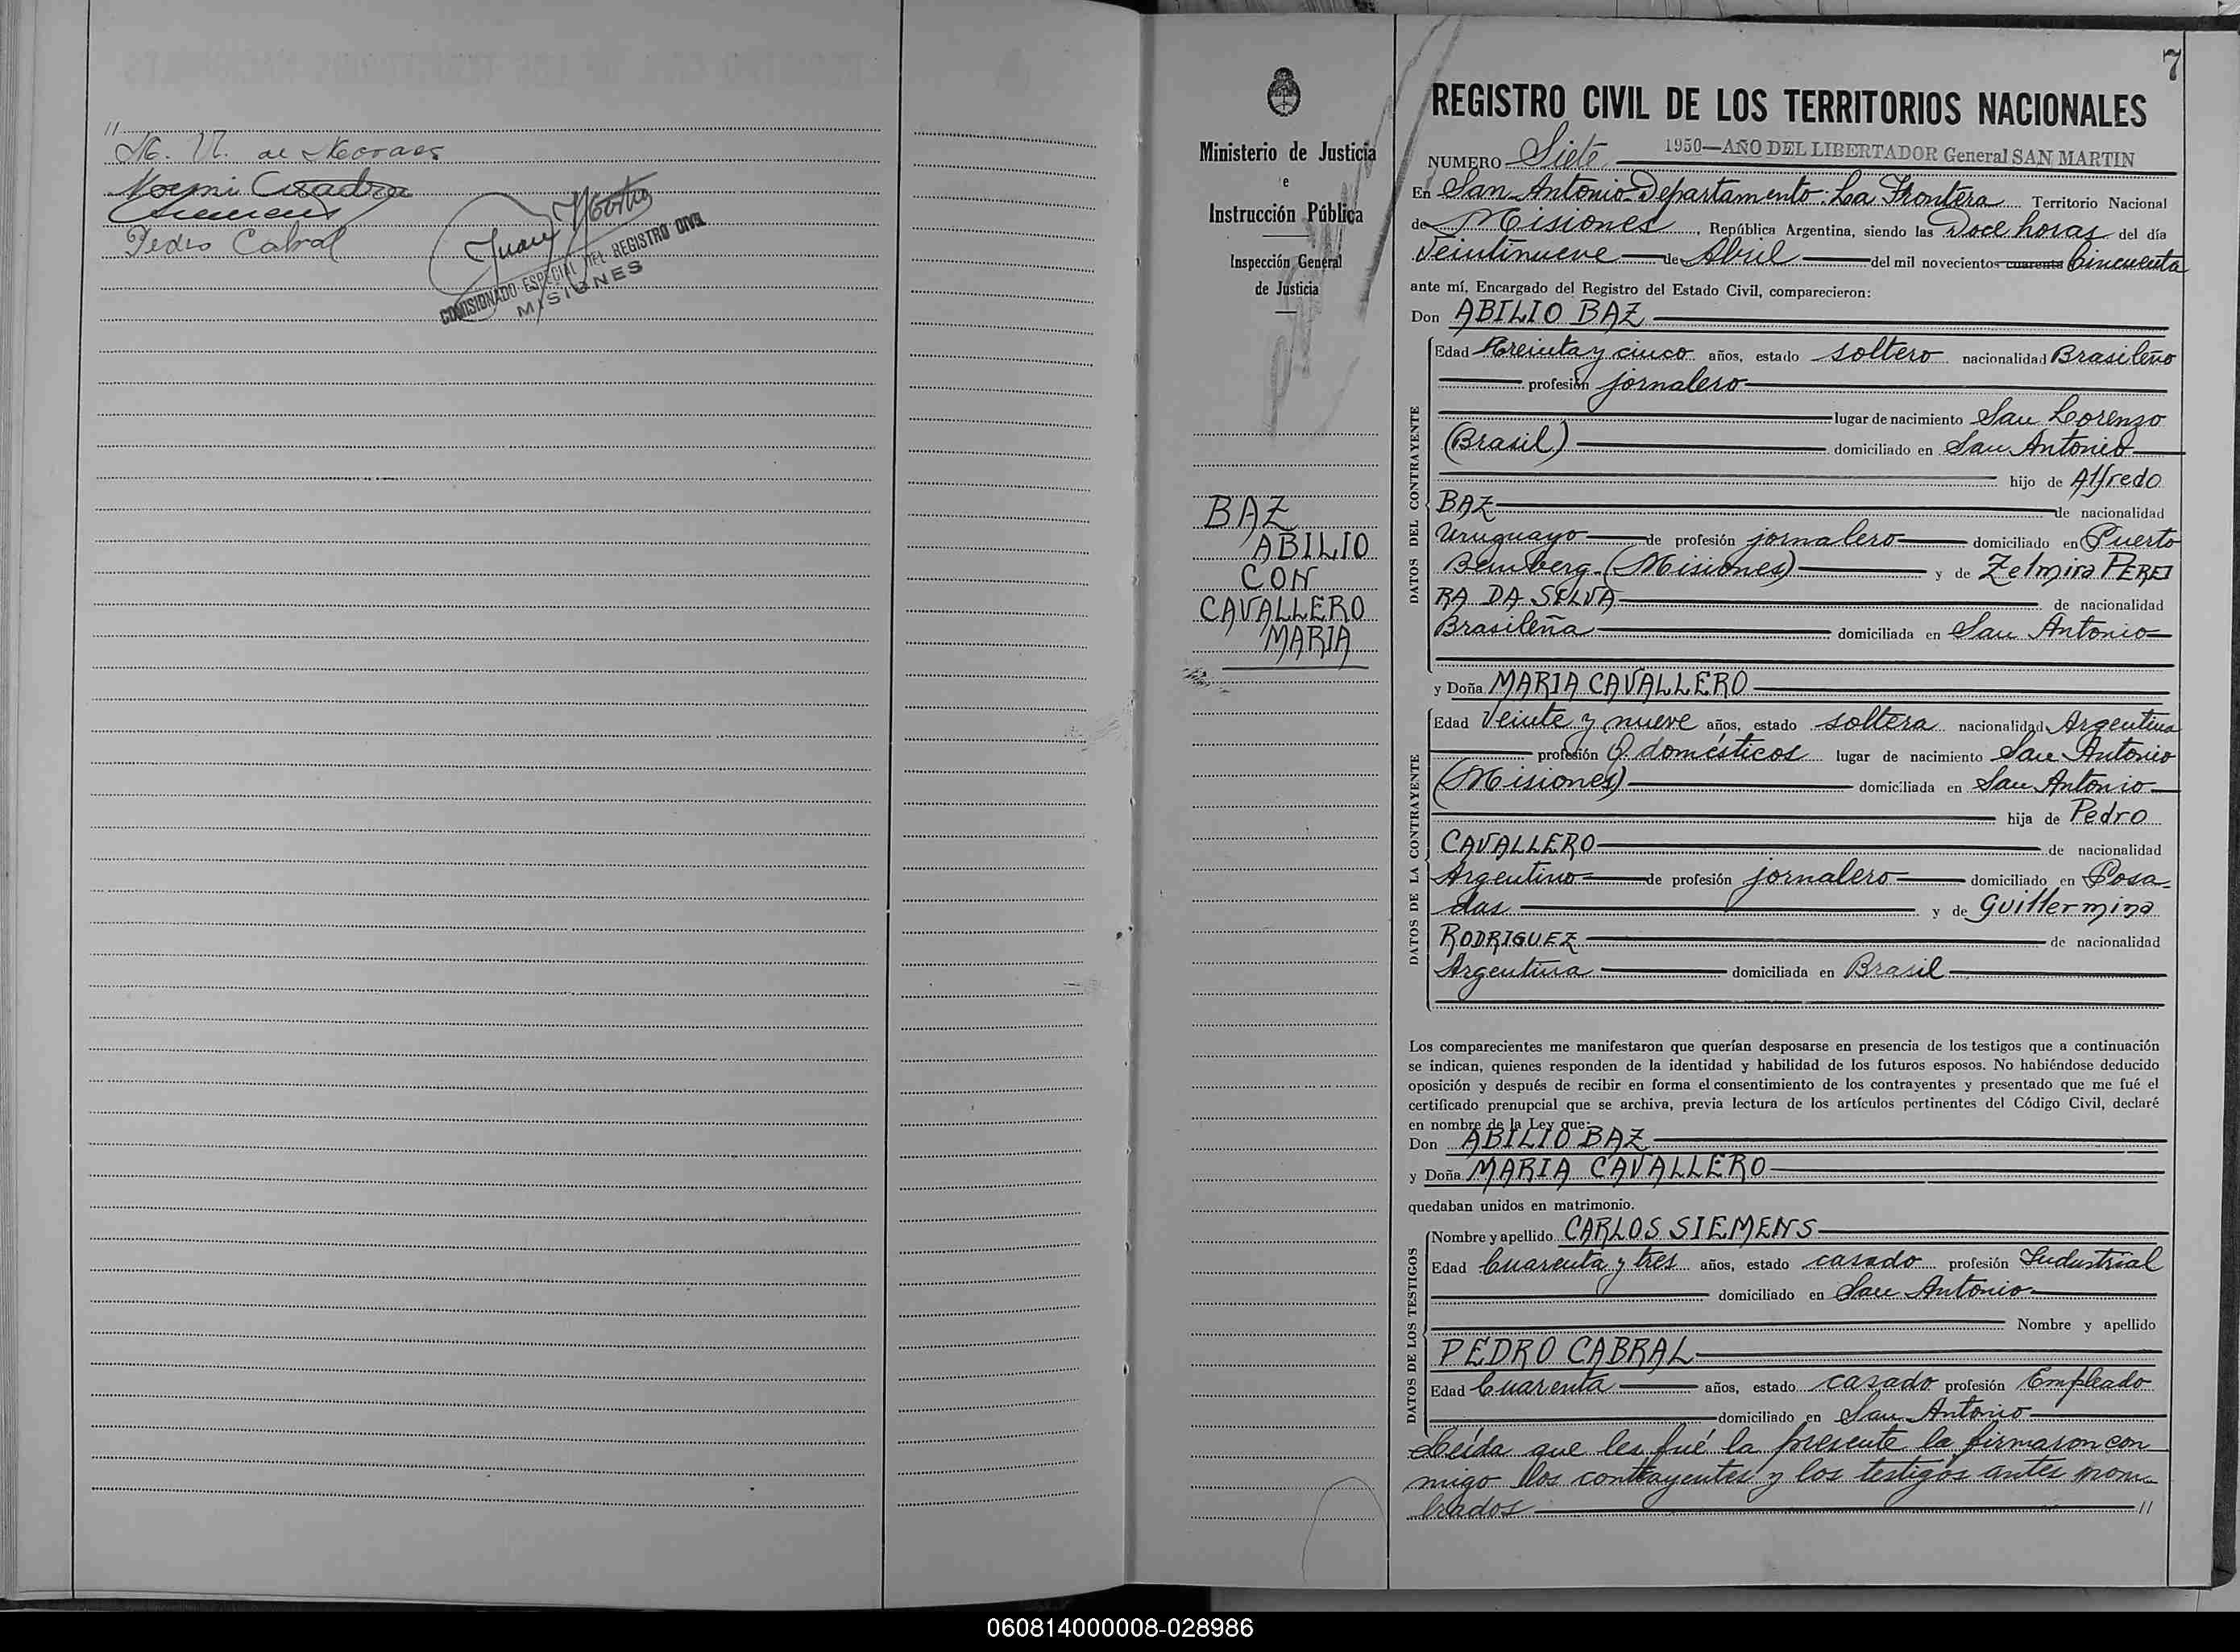 //
M. N. de Moraes
Noemi Cuadra
Siemens
Pedro Cabral
Juan
COMISIONADO ESPECIAL DEL REGISTRO CIVIL
MISIONES
Ministerio de Justicia
e
Instrucción Pública
Inspección General
de Justicia
BAZ
ABILIO
CON
CAVALLERO
MARIA
7
REGISTRO CIVIL DE LOS TERRITORIOS NACIONALES
1950—AÑO DEL LIBERTADOR General SAN MARTIN
NUMERO Siete
En San Antonio Departamento: La Frontera Territorio Nacional
de Misiones, República Argentina, siendo las Doce horas del día
Veintinueve de Abril del mil novecientos cuarenta Cincuenta
ante mí, Encargado del Registro del Estado Civil, comparecieron:
Don ABILIO BAZ
DATOS DEL CONTRAYENTE
Edad Treinta y cinco años, estado soltero nacionalidad Brasileño
profesión jornalero
lugar de nacimiento San Lorenzo
(Brasil) domiciliado en San Antonio
hijo de Alfredo
BAZ de nacionalidad
Uruguayo de profesión jornalero domiciliado en Puerto
Bemberg (Misiones) y de Zelmira PEREI
RA DA SILVA de nacionalidad
Brasileña domiciliada en San Antonio
y Doña MARIA CAVALLERO
DATOS DE LA CONTRAYENTE
Edad Veinte y nueve años, estado soltera nacionalidad Argentina
profesión Q. domésticos lugar de nacimiento San Antonio
(Misiones) domiciliada en San Antonio
hija de Pedro
CAVALLERO de nacionalidad
Argentino de profesión jornalero domiciliado en Posa-
das y de Guillermina
RODRIGUEZ de nacionalidad
Argentina domiciliada en Brasil
Los comparecientes me manifestaron que querían desposarse en presencia de los testigos que a continuación
se indican, quienes responden de la identidad y habilidad de los futuros esposos. No habiéndose deducido
oposición y después de recibir en forma el consentimiento de los contrayentes y presentado que me fué el
certificado prenupcial que se archiva, previa lectura de los artículos pertinentes del Código Civil, declaré
en nombre de la Ley que:
Don ABILIO BAZ
y Doña MARIA CAVALLERO
quedaban unidos en matrimonio.
DATOS DE LOS TESTIGOS
Nombre y apellido CARLOS SIEMENS
Edad Cuarenta y tres años, estado casado profesión Industrial
domiciliado en San Antonio
Nombre y apellido
PEDRO CABRAL
Edad Cuarenta años, estado casado profesión Empleado
domiciliado en San Antonio
Leída que les fué la presente la firmaron con
migo los contrayentes y los testigos antes nom-
brados //
060814000008-028986